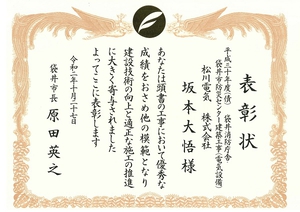 表彰状
平成三十年度(債) 袋井消防庁舎
袋井市防災センター建築工事(電気設備)
松川電気 株式会社
坂本大悟様
あなたは頭書の工事において優秀な
成績をおさめ他の模範となり
建設技術の向上と適正な施工の推進
に大きく寄与されました
よってここに表彰します
令和二年十月二十七日
袋井市長 原田英之